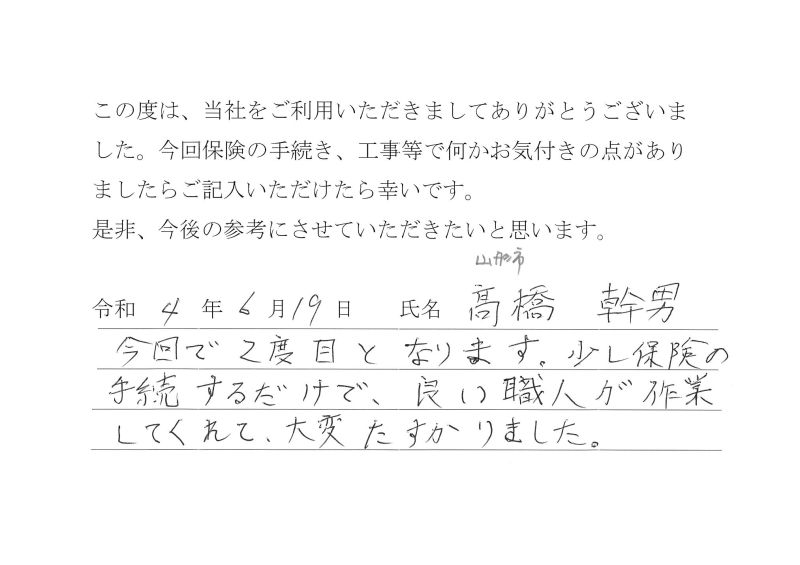 この度は、当社をご利用いただきましてありがとうございま
した。今回保険の手続き、工事等で何かお気付きの点があり
ましたらご記入いただけたら幸いです。
是非、今後の参考にさせていただきたいと思います。
山形市
令和 4 年 6 月 19 日 氏名 髙橋 幹男
今回で2度目となります。少し保険の
手続するだけで、良い職人が作業
してくれて、大変たすかりました。